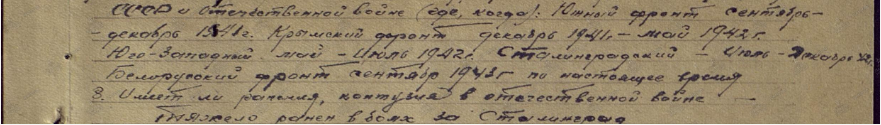 СССР и отечественной войне (где, когда): Южный фронт сентябрь-
- декабрь 1941г. Крымский фронт декабрь 1941г - май 1942 г.
Юго-Западный май - июль 1942г. Сталинградский - июль - декабрь 42г.
Белорусский фронт сентябр 1943г по настоящее время
8. Имеет ли ранения, контузия в отечественной войне —
тяжело ранен в боях за Сталинград